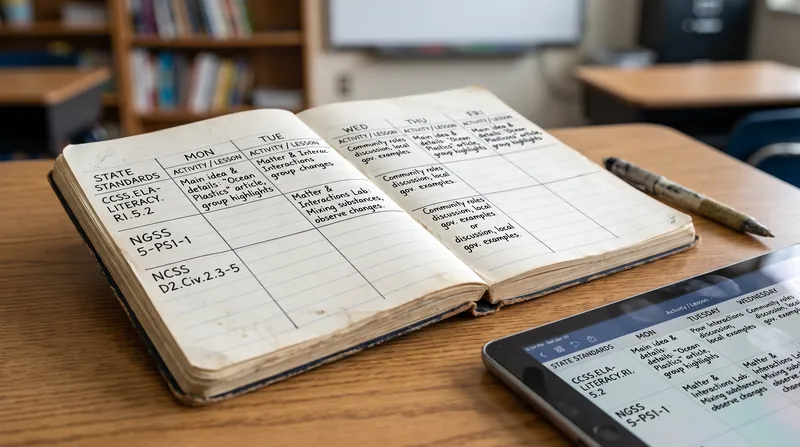 STATE
STANDARDS
CCSS.ELA-
LITERACY.
RI.5.2
NGSS
5-PS1-1
NCSS
D2.Civ.2.3-5
MON
ACTIVITY / LESSON
Main idea &
details: "Ocean
Plastics" article,
group highlights
TUE
ACTIVITY / LESSON
Matter & Interac
Interactions
group changes
Matter &
Interactions Lab:
Mixing substances,
observe changes.
WED
ACTIVITY / LESSON
Community roles
discussion, local
gov. examples
Community roles
discussion, local
gov. examples.
Community roles
discussion, local
gov. examples
or
discussion, local
gov. examples.
THU
ACTIVITY / LESSON
Main idea &
details: "Ocean
Plastics" article,
group highlights
FRI
ACTIVITY / LESSON
Main idea &
discussion: "Ocean
Plastics" article
group highlights
Activity / Lesson
STATE STANDARDS
MON
TUESDAY
WEDNESDAY
CCSS.ELA-
LITERACY.RI.
5.2
Main idea &
details: "Ocean
Plastics" article,
group highlights
Pour Interactions
discussion,
local examples
Community roles
discussion, local
gov. examples
NGSS
5-PS1-1
Matter &
Interactions Lab:
Mixing substances,
observe changes
Matter &
Interactions Lab:
Mixing substances,
observe changes